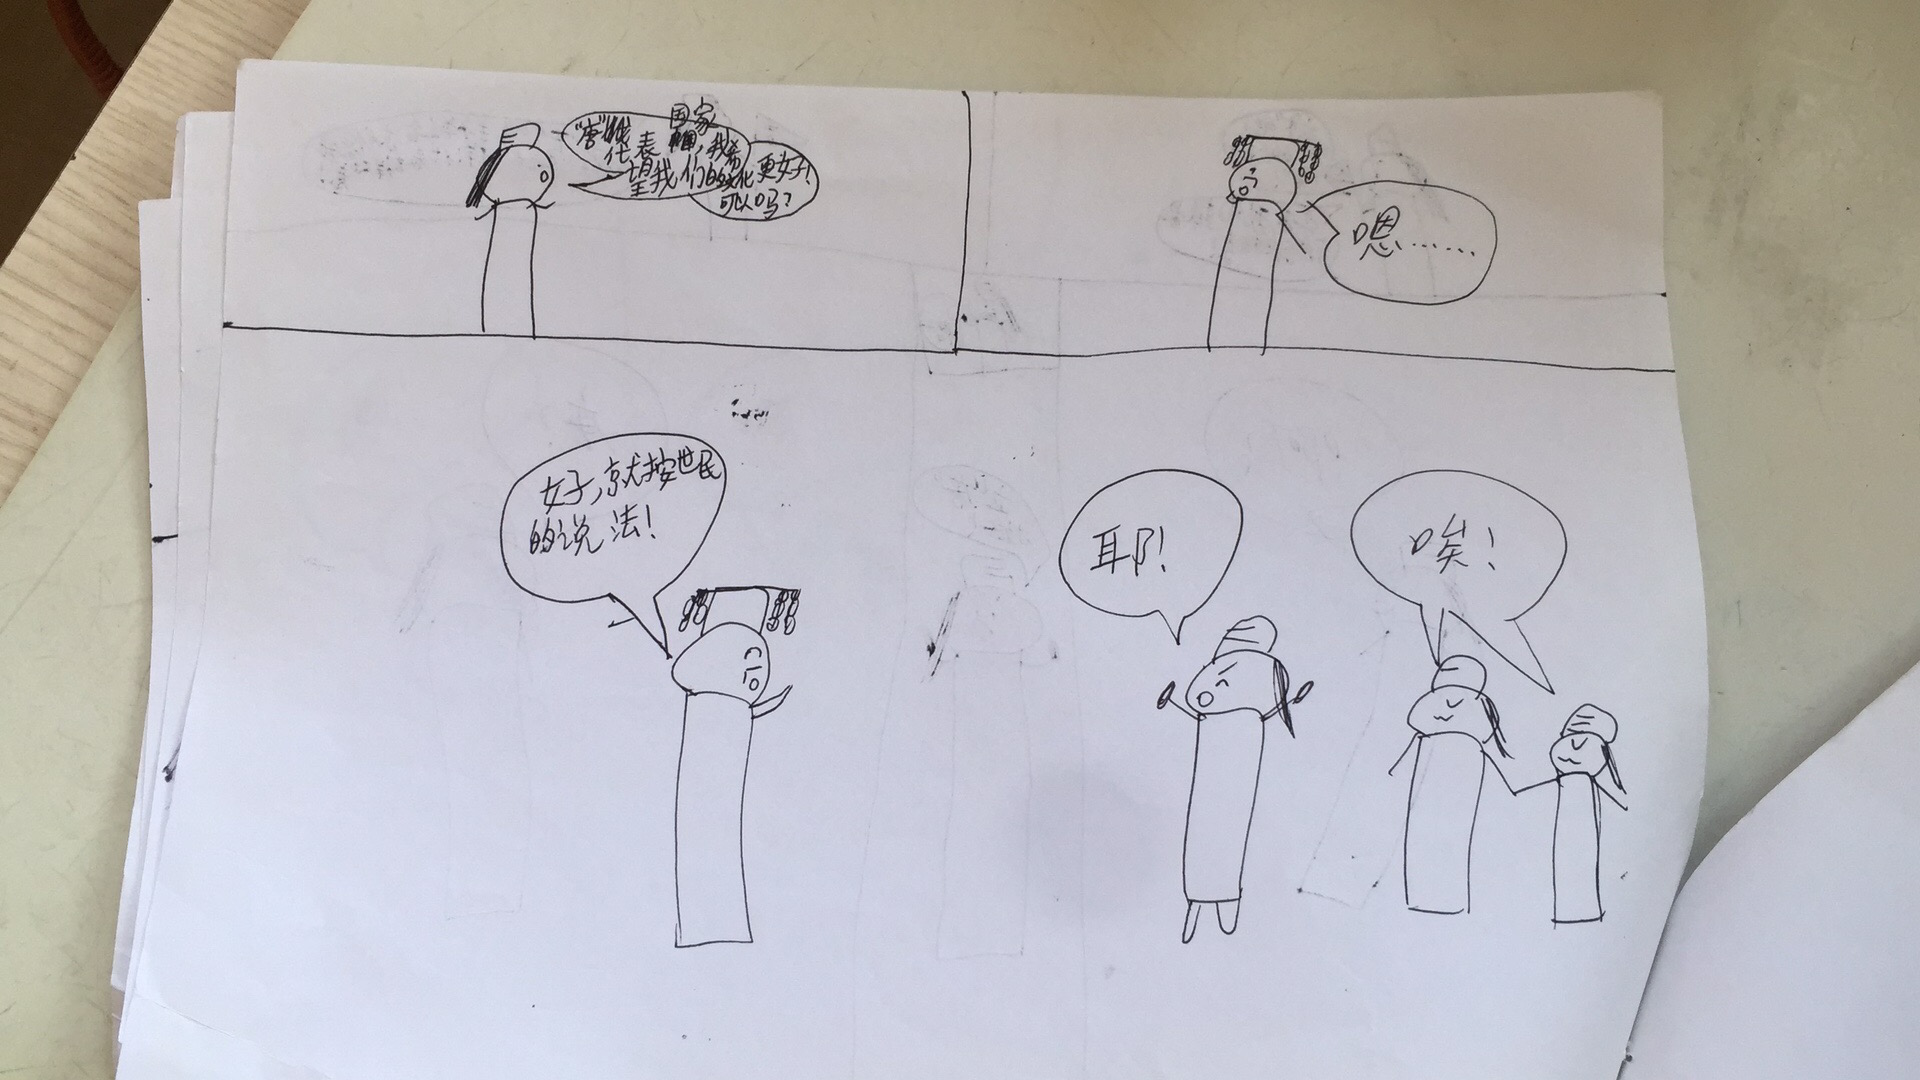 "唐"
国家
代表,我希
望我们的文化更好!
可以吗?
嗯……
好,就按世民
的说法!
耶!
唉!